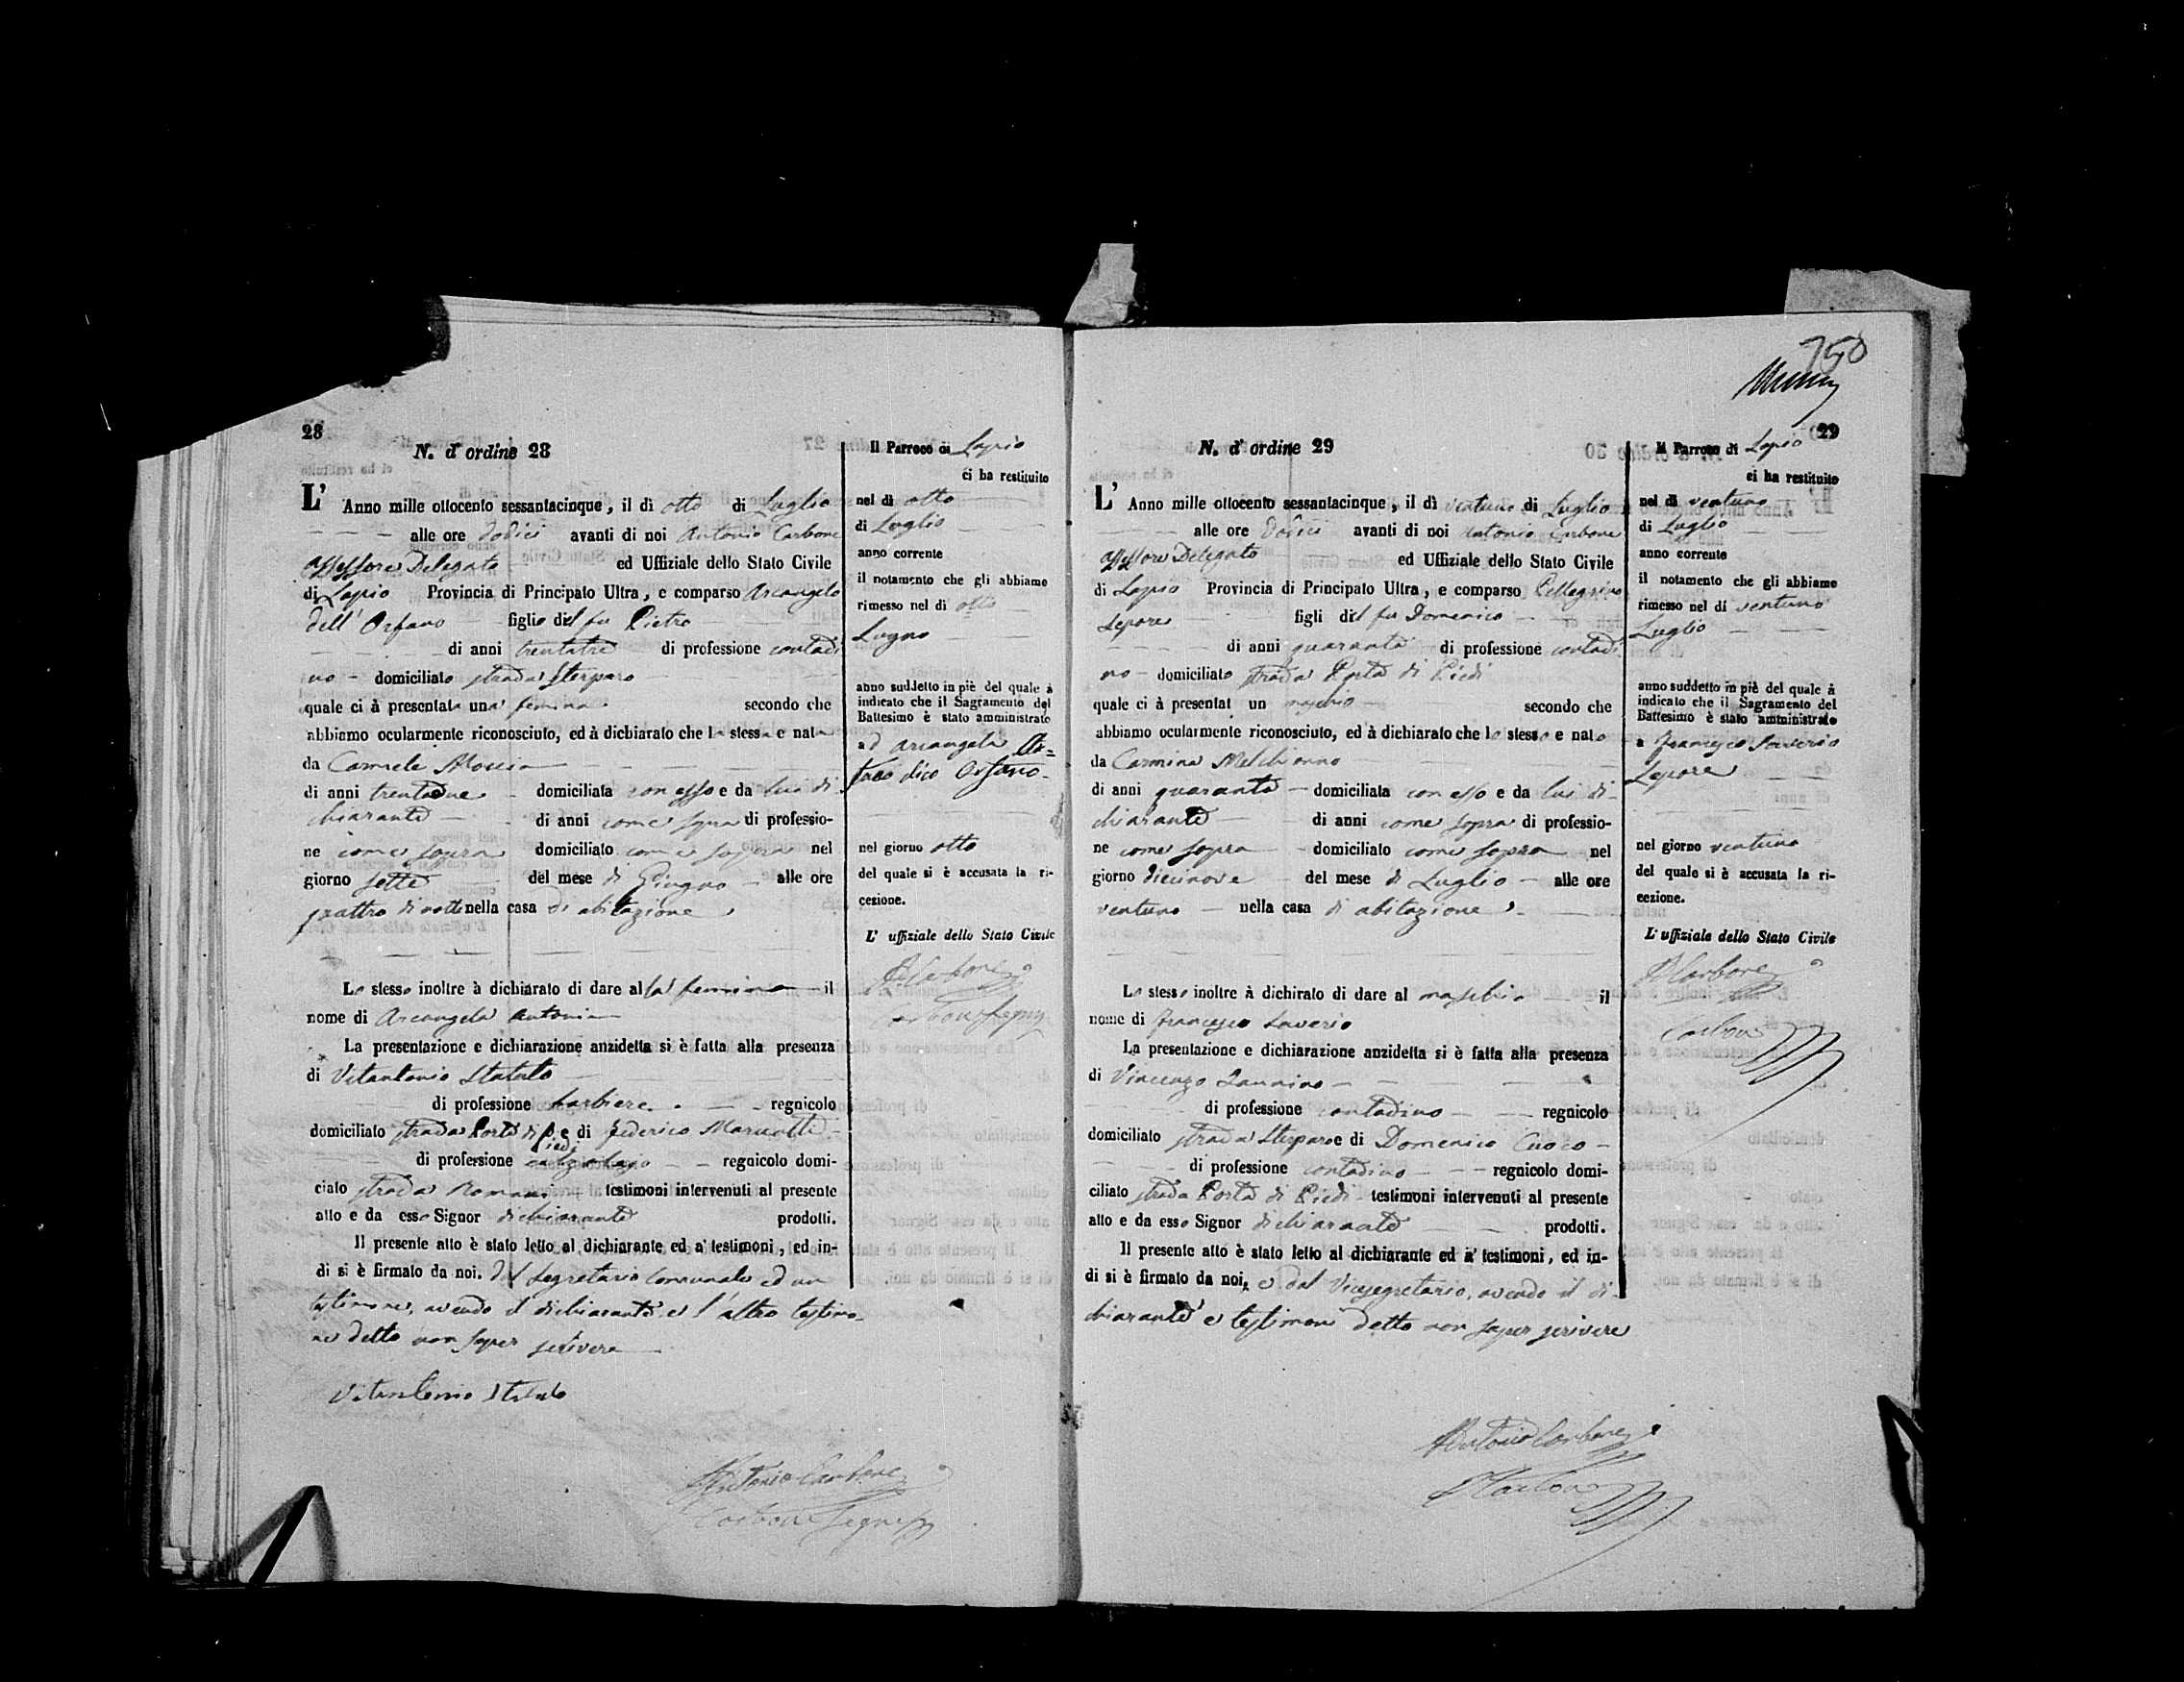 28
N. d' ordine 28
L' Anno mille ottocento sessantacinque, il dì otto di Luglio
alle ore dodici avanti di noi Antonio Carbone
Assessore Delegato ed Uffiziale dello Stato Civile
di Lapio Provincia di Principato Ultra, e comparso Arcangelo
dell'Orfano figlio del fu Pietro
di anni trentatre di professione contadi
no domiciliato strada Sterparo
quale ci à presentata una femina secondo che
abbiamo ocularmente riconosciuto, ed à dichiarato che la stessa e nata
da Carmela
di anni trentadue domiciliata con esso e da lui di-
chiarante di anni come sopra di professio-
ne come sopra domiciliato come sopra nel
giorno sette del mese di Giugno alle ore
quattro di notte nella casa di abitazione
Lo stesso inoltre à dichiarato di dare alla femina il
nome di Arcangela Antonia
La presentazione e dichiarazione anzidetta si è fatta alla presenza
di Vitantonio Statuto
di professione barbiere regnicolo
domiciliato strada Porta di Piedi e di Federico Marcotti
di professione calzolajo regnicolo domi-
ciato strada Romani testimoni intervenuti al presente
atto e da esso Signor dichiarante prodotti.
Il presente atto è stato letto al dichiarante ed a' testimoni, ed in-
di si è firmato da noi. dal Segretario Comunale ed un
testimone, avendo il dichiarante e l'altro testimo-
ne detto non saper scrivere
Vitantonio Statuto
Antonio Carbone
Carbone Segr
Il Parroco di Lapio
ci ha restituito
nel dì otto
di Luglio
anno corrente
il notamento che gli abbiamo
rimesso nel di otto
Lugno
anno suddetto in piè del quale à
indicato che il Sagramento del
Battesimo è stato amministrato
ad Arcangela
dico Orfano
nel giorno otto
del quale si è accusata la ri-
cezione.
L' uffiziale dello Stato Civile
A Carbone
Carbone Segr
750
29
N. d' ordine 29
L' Anno mille ottocento sessantacinque, il dì ventuno di Luglio
alle ore dodici avanti di noi Antonio Carbone
Assessore Delegato ed Uffiziale dello Stato Civile
di Lapio Provincia di Principato Ultra, e comparso Pellegrino
Lepore figli del fu Domenico
di anni quaranta di professione contadi
no domiciliato strada Porta di Piedi
quale ci à presentat un maschio secondo che
abbiamo ocularmente riconosciuto, ed à dichiarato che lo stesso e nato
da Carmina Melchionno
di anni quaranta domiciliata con esso e da lui di-
chiarante di anni come sopra di professio-
ne come sopra domiciliato come sopra nel
giorno diecinove del mese di Luglio alle ore
ventuno nella casa di abitazione
Lo stesso inoltre à dichirato di dare al maschio il
nome di Francesco Saverio
La presentazione e dichiarazione anzidetta si è fatta alla presenza
di Vincenzo Iannino
di professione contadino regnicolo
domiciliato strada Sterparo e di Domenico Cuoco
di professione contadino regnicolo domi-
ciliato strada Porta di Piedi testimoni intervenuti al presente
atto e da esso Signor dichiarante prodotti.
Il presente atto è stato letto al dichiarante ed a' testimoni, ed in-
di si è firmato da noi, e dal Vicesegretario, avendo il di-
chiarante e testimoni detto non saper scrivere
Antonio Carbone
Carbone
Il Parroco di Lapio
ci ha restituito
nel dì ventuno
di Luglio
anno corrente
il notamento che gli abbiamo
rimesso nel di ventuno
Luglio
anno suddetto in piè del quale à
indicato che il Sagramento del
Battesimo è stato amministrato
a Francesco Saverio
Lepore
nel giorno ventuno
del quale si è accusata la ri-
cezione.
L' uffiziale dello Stato Civile
A Carbone
Carbone